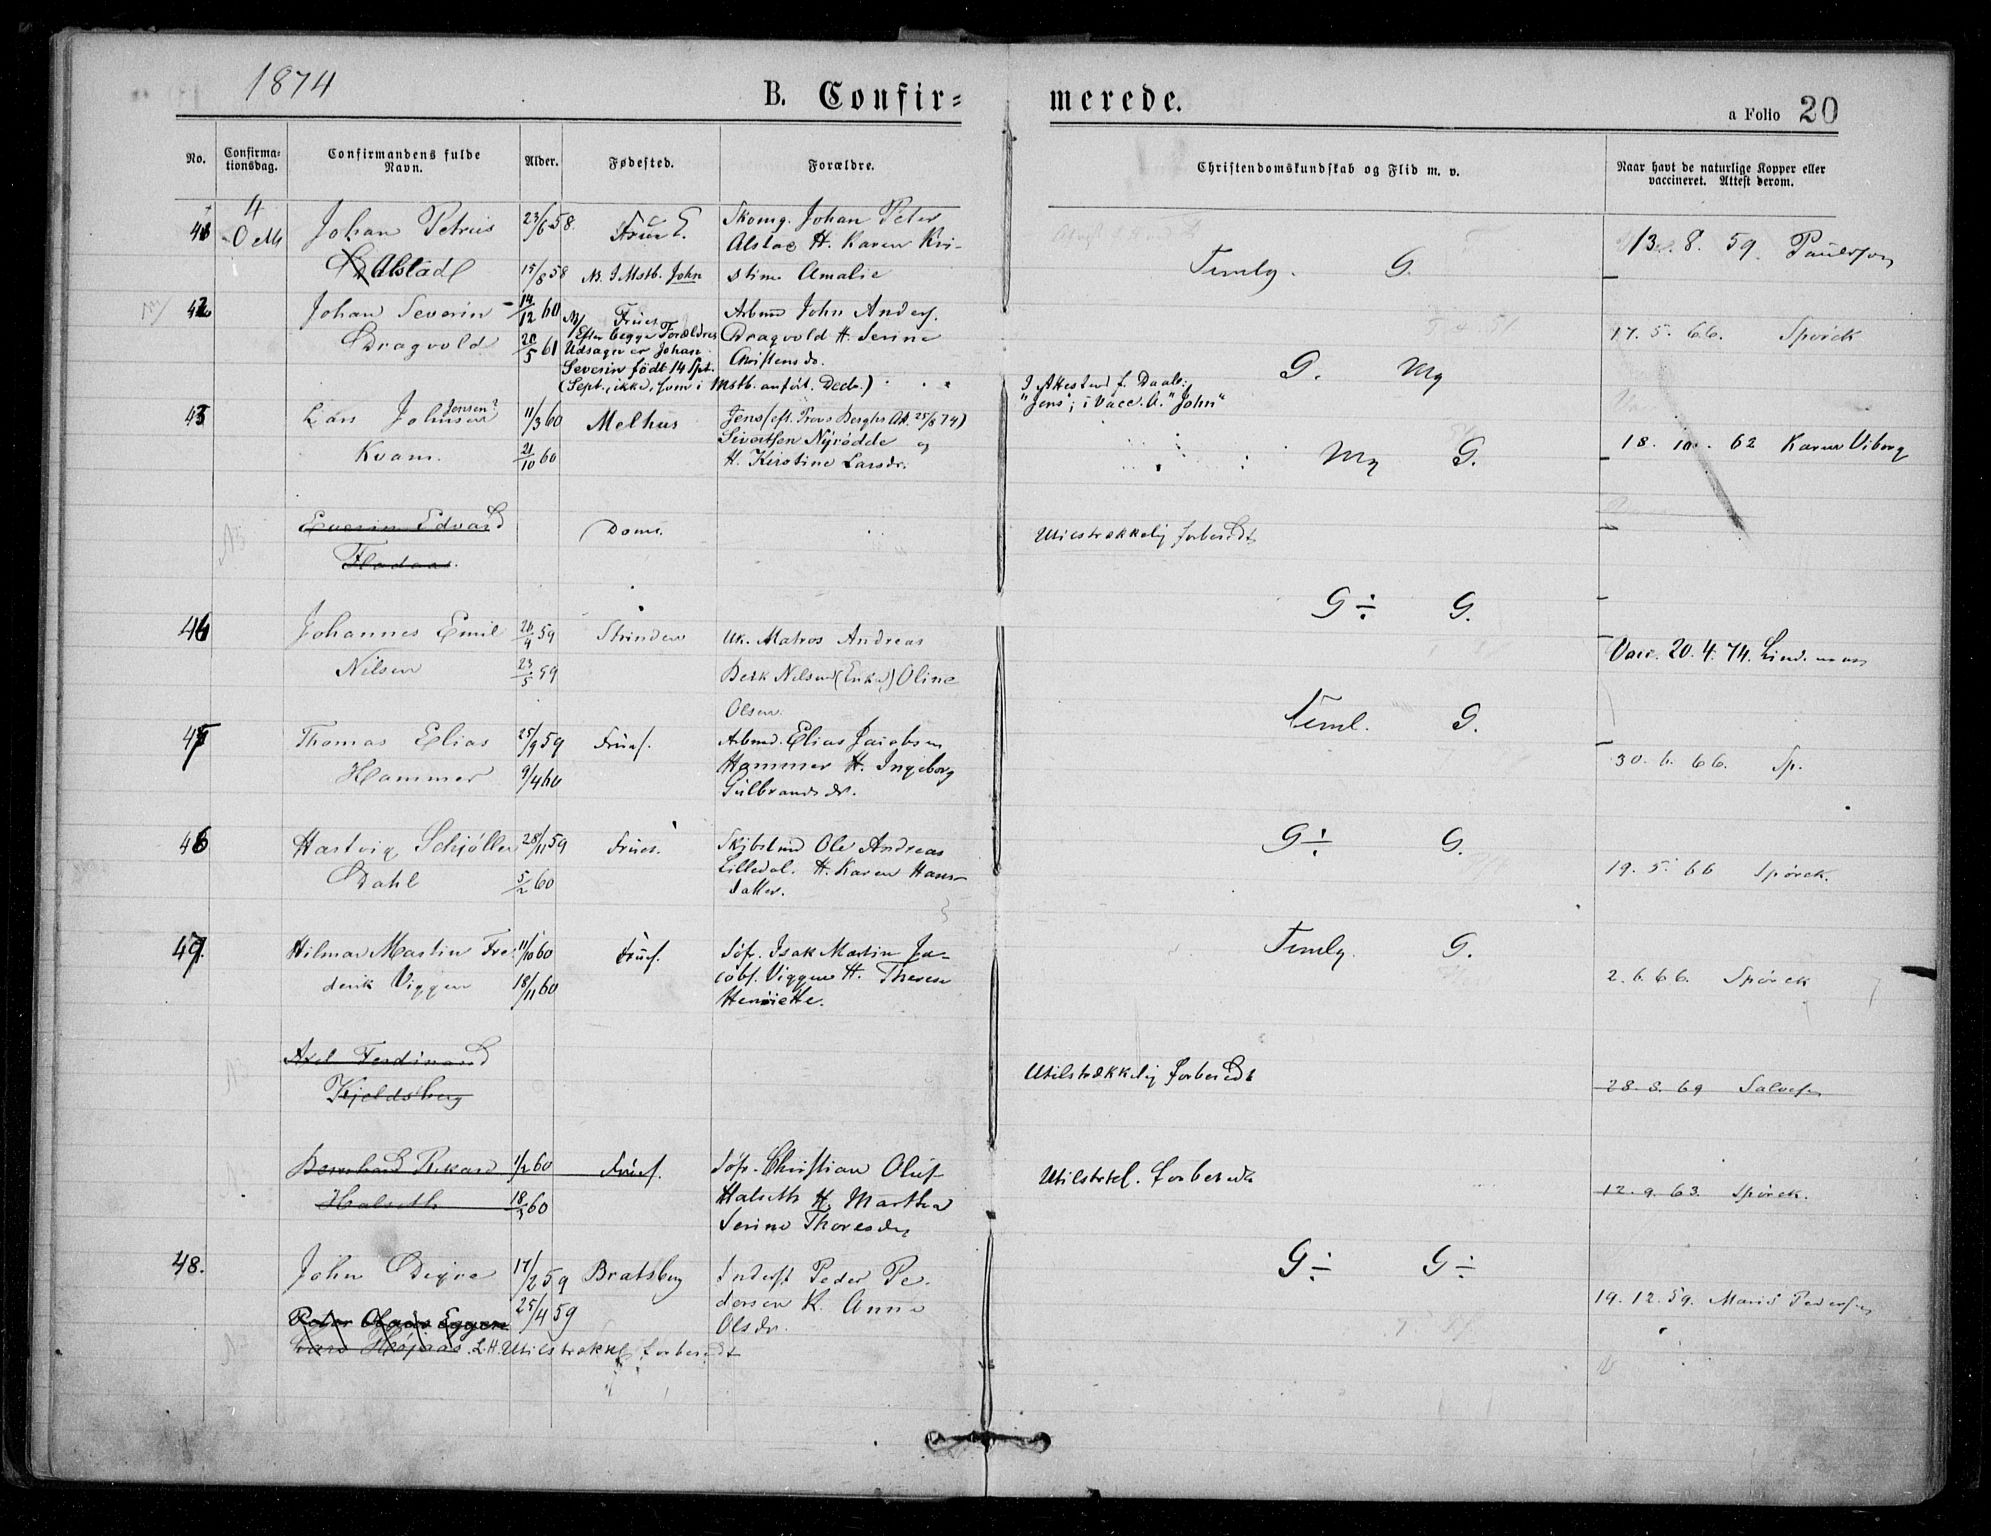 1874
B. Confir=
merede.
a Folio 20
No.
Confirma-
tionsdag.
Confirmandens fulde
Navn.
Alder.
Fødested.
Forældre.
Christendomskundskab og Flid m. v.
Naar havt de naturlige Kopper eller
vaccineret. Attest derom.
41 4 Johan Petrus 23/6 58. Skomg. Johan Peter
Octb Alstad 15/8 58 NB. I Mstb. John Alstad H. Karen Kri-
stine Amalie
Temlg. G. 13. 8. 59.
42 Johan Severin 14/12 60 Frues. Arbmd John Anders.
Dragvold 20/5 61 NB Efter begge Forældres
Udsagn er Johan
Severin født 14 Spt.
(Sept., ikke, som i Mstb. anført. Decb.)
Dragvold H. Serine
Christensdr.
G. Mg 17. 5. 66. Spørck
43 Lars Johnsen Jensen? 11/3 60 Melhus Jens (eft. Provs Berghs Att. 25/8 74)
Kvam. 21/10 60 Sivertsen Nyrødde og
H. Kirstine Larsdr.
I Attestens f. Daab:
"Jens"; i Vacc. A. "John"
Mg G. 18. 10. 62 Karen Viborg
Edvard Doms. Utilstrækkelig forberedt
Flodaas.
44 Johannes Emil 59 Strinden Uk. Matros Andreas
Nilsen 23/5 59 Berk Nilsen (Enke) Oline
Olsen.
G÷ G. Vacc. 20. 4. 74. Lindman
45 Thomas Elias 25/9 59 Frues. Arbmd. Elias Jacobsen
Hammer 9/4 60 Hammer H. Ingeborg
Gulbrandsdr.
Teml. G. 30. 6. 66. Sp.
46 Hartvig Schjøller 28/11 59 Frues. Ole Andreas
Dahl 5/2 60 Lilledal. H. Karen Hans-
datter.
G÷ G. 19. 5. 66 Spørck.
47. Hilmar Martin Fre- 11/10 60 Frues. Søfr. Isak Martin Ja-
derik Viggen 18/11 60 cobs. Viggen H. Therese
Henriette.
Temlg. G. 2. 6. 66. Spørck
Axel Ferdinand
Kjeldsberg
Utilstrækkelig forberedt
28. 8. 69 Salvesen
Bernhard Rikard 1/2 60 Frues. Søfr. Christian Oluf
Halseth 18/3 60 Halseth H. Martha
Serine Thoresdr
Utilstrkl. forberedt
12. 9. 63. Spørck.
48. John Digre 17/2 59 Bratsberg Inderst Peder Pe-
25/4 59 dersen K. Anne
Olsdr.
G÷ G÷ 19. 12. 59. Marit Pedersen
Peter Olaus Eggen
Lars Høyaas. L.H. Utilstrækkel. forberedt